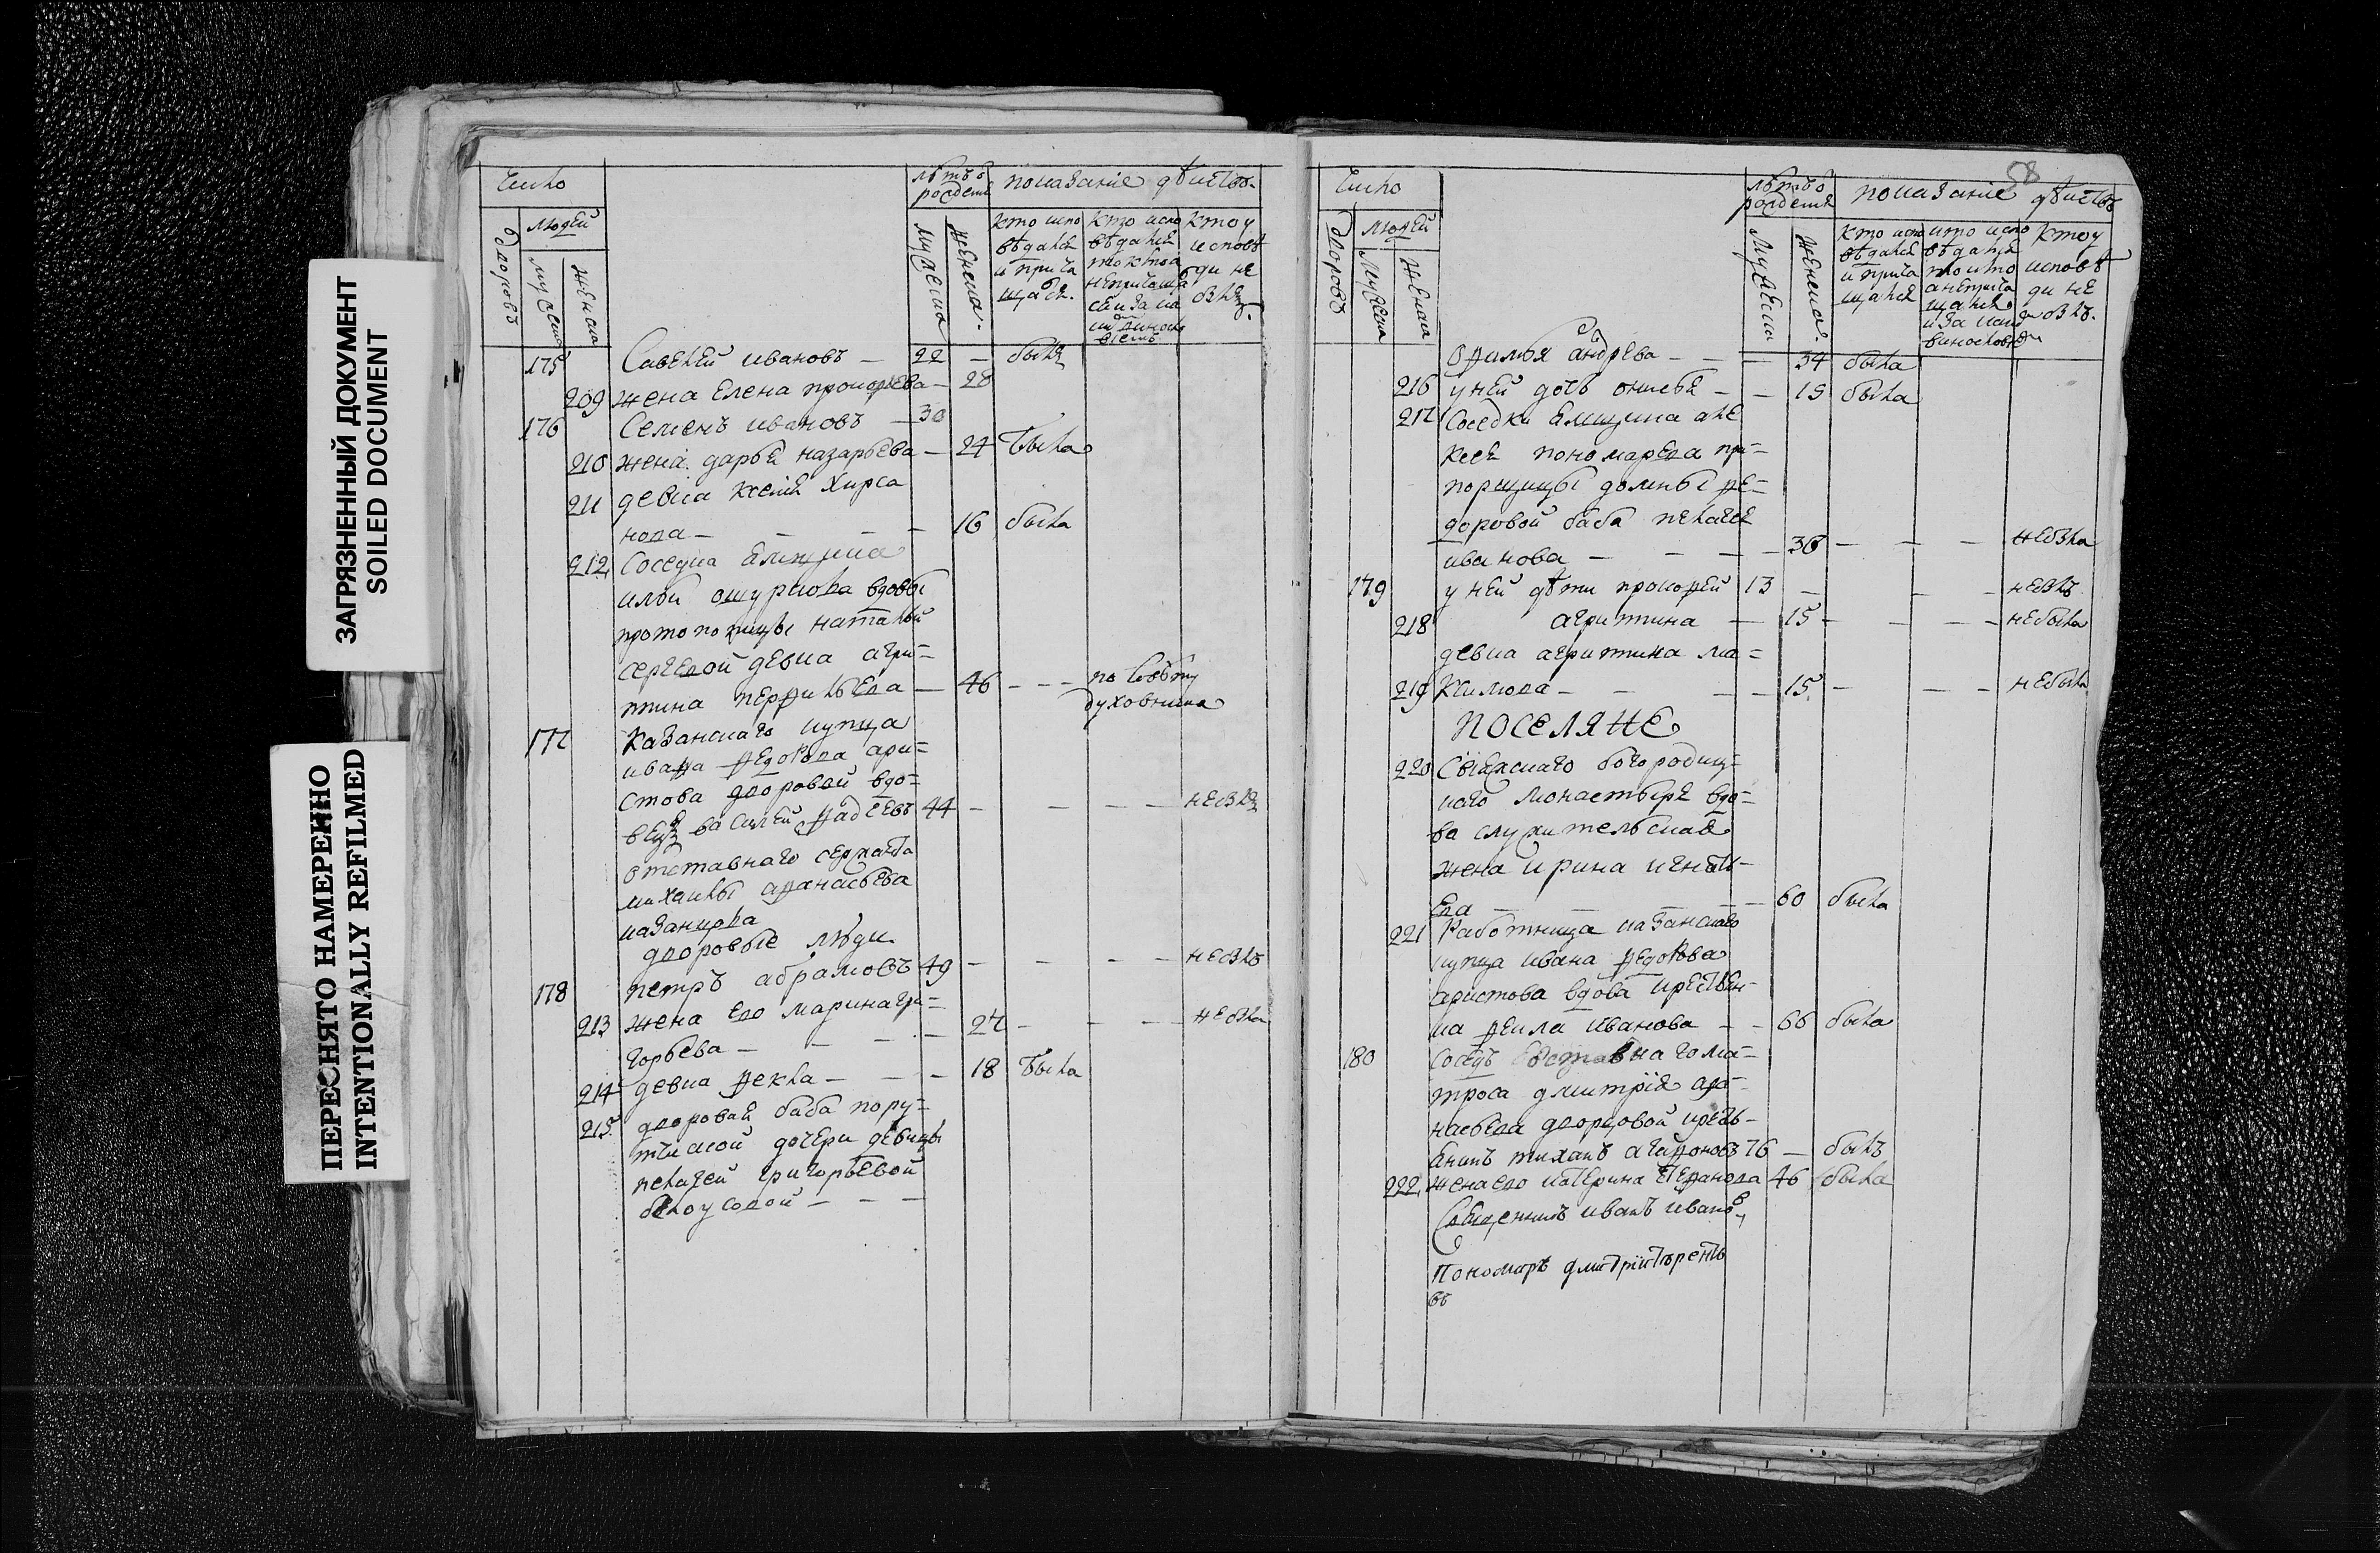 ЗАГРЯЗНЕННЫЙ ДОКУМЕНТ
SOILED DOCUMENT
ПЕРЕСНЯТО НАМЕРЕННО
INTENTIONALLY REFILMED
Число
людей
дворовъ
мужеска
женска
лѣтъ о
рожденія
мужеска
женска.
показание дѣйствъ.
кто испо
вѣдался
и прича
щался.
кто испо
вѣдался
токмо а
не причаща
кто у
исповѣ
ди не
былъ.
175 Савелей ивановъ — 22 — былъ
209 жена Елена прокофьева — 28
176 Семенъ ивановъ — 30
210 жена дарья назарьева — 24 была
211 девка
нова — — — 16 была
212 Соседка
вдовы
протопопицы натальи
сергевой девка агри=
пина перфильева — 46 — — — по совѣту
духовника
177 Казанскаго купца
ивана федорова ари=
стова дворовой вдо=
вецъ василей фадеевъ 44 — — — — не былъ
отставнаго сержанта
михаилы афанасьева
казанцова
дворовые люди
178 петръ абрамовъ 49 — — — — не былъ
213 жена ево марина гри=
горьева — — — — 27 — — — не была
214 девка фекла — — — 18 была
215 дворовая баба пору=
тческой дочери девицы
пелагеи григорьевой
белоусовой — — —
58
Число
дворовъ
людей
мужеска
женска
лѣтъ о
рожденія
мужеска
женска.
показание дѣйствъ
кто испо
вѣдался
и прича
щался
кто испо
вѣдался
токмо
а не прича
щался
кто у
исповѣ
ди не
былъ.
офимья андрева — — — 34 была
216 у ней дочь — — 19 была
217 Соседки
пономарева пра=
порщицы домны фе=
доровой баба пелагея
иванова — — — — 36 — — — не была
179 у ней дѣти прокофей 13 — — — не былъ
218 агрипина — 15 — — — не была
девка агрипина ма=
219 ксимова — — — — 15. — — — не была
ПОСЕЛЯНЕ
220 Свіяжскаго богородиц=
каго монастыря вдо=
ва служительская
жена ирина игнать=
ева — — — — — 60 была
221 Работница казанскаго
купца ивана федорова
аристова вдова крестьян=
ка иванова — — 66 была
180 соседъ отставнаго ма=
троса дмитрія афо=
насьева дворцовой кресть=
янинъ агафоновъ 76 — былъ
222 жена ево катерина степанова 46 была
Священникъ иванъ ивановъ
Пономарь дмитрій